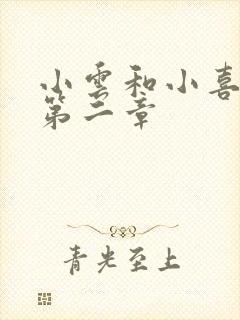 小雲和小喜
第二章
青光至上